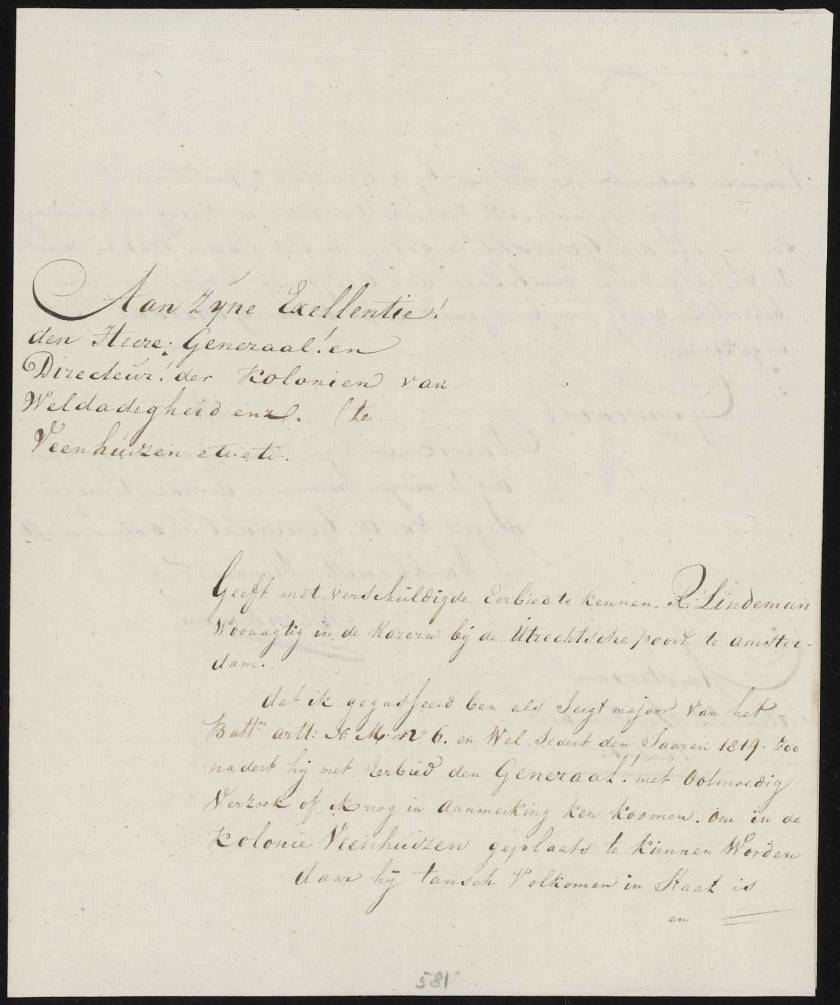 Aan Zÿne Exellentie!
den Heere: Generaal! en
Directeur! der Kolonien van
Weldadigheid enz. (te
Veenhuizen etc etc.
Geeft met verschuldigde Eerbied te kennen. R Lindeman
Woonagtig in de Kazern bÿ de Utrechtsche poort te amster-
dam.
dat ik gegasseerd ben als Sergt majoor van het
Battn artt: N. M. No 6. en Wel Sedert den Jaaren 1819. zoo
nadert hÿ met Eerbied den Generaal! met Ootmoedig
Verzoek of ik nog in aanmerking ken koomen. om in de
Kolonie Veenhuizen geplaats te kunnen Worden
daar hÿ tansch Volkomen in Staat is
en
581